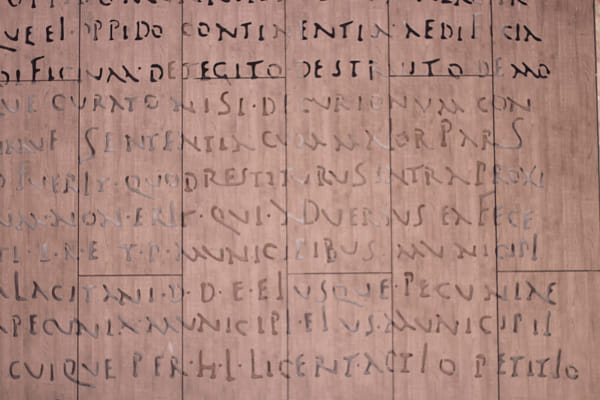 QVE EI OPPIDO CONTINENTIA AEDIFICIA
DIFICIVM DETEGITO DESTRVITO DEMO
VE CVRATO NISI DE CVRIONVM CON
SENTENTIA CVM MAIOR PARS
FVERIT QVOD RESTITVRVS INTRA PROXI
NON ERIT QVI ADVERSVS EA FECE
T P MVNICIPIBVS MVNICIPI
LACITANI D D E EIVSQVE PECVNIAE
PECVNIA MVNICIPI EIVS MVNICIPII
CVIQVE PER H L LICEBIT ACTIO PETITIO